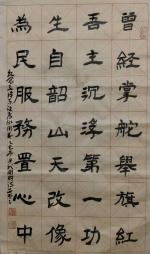 曾經掌舵舉旗紅
吾主沉浮第一功
生自韶山天改像
為民服務置心中